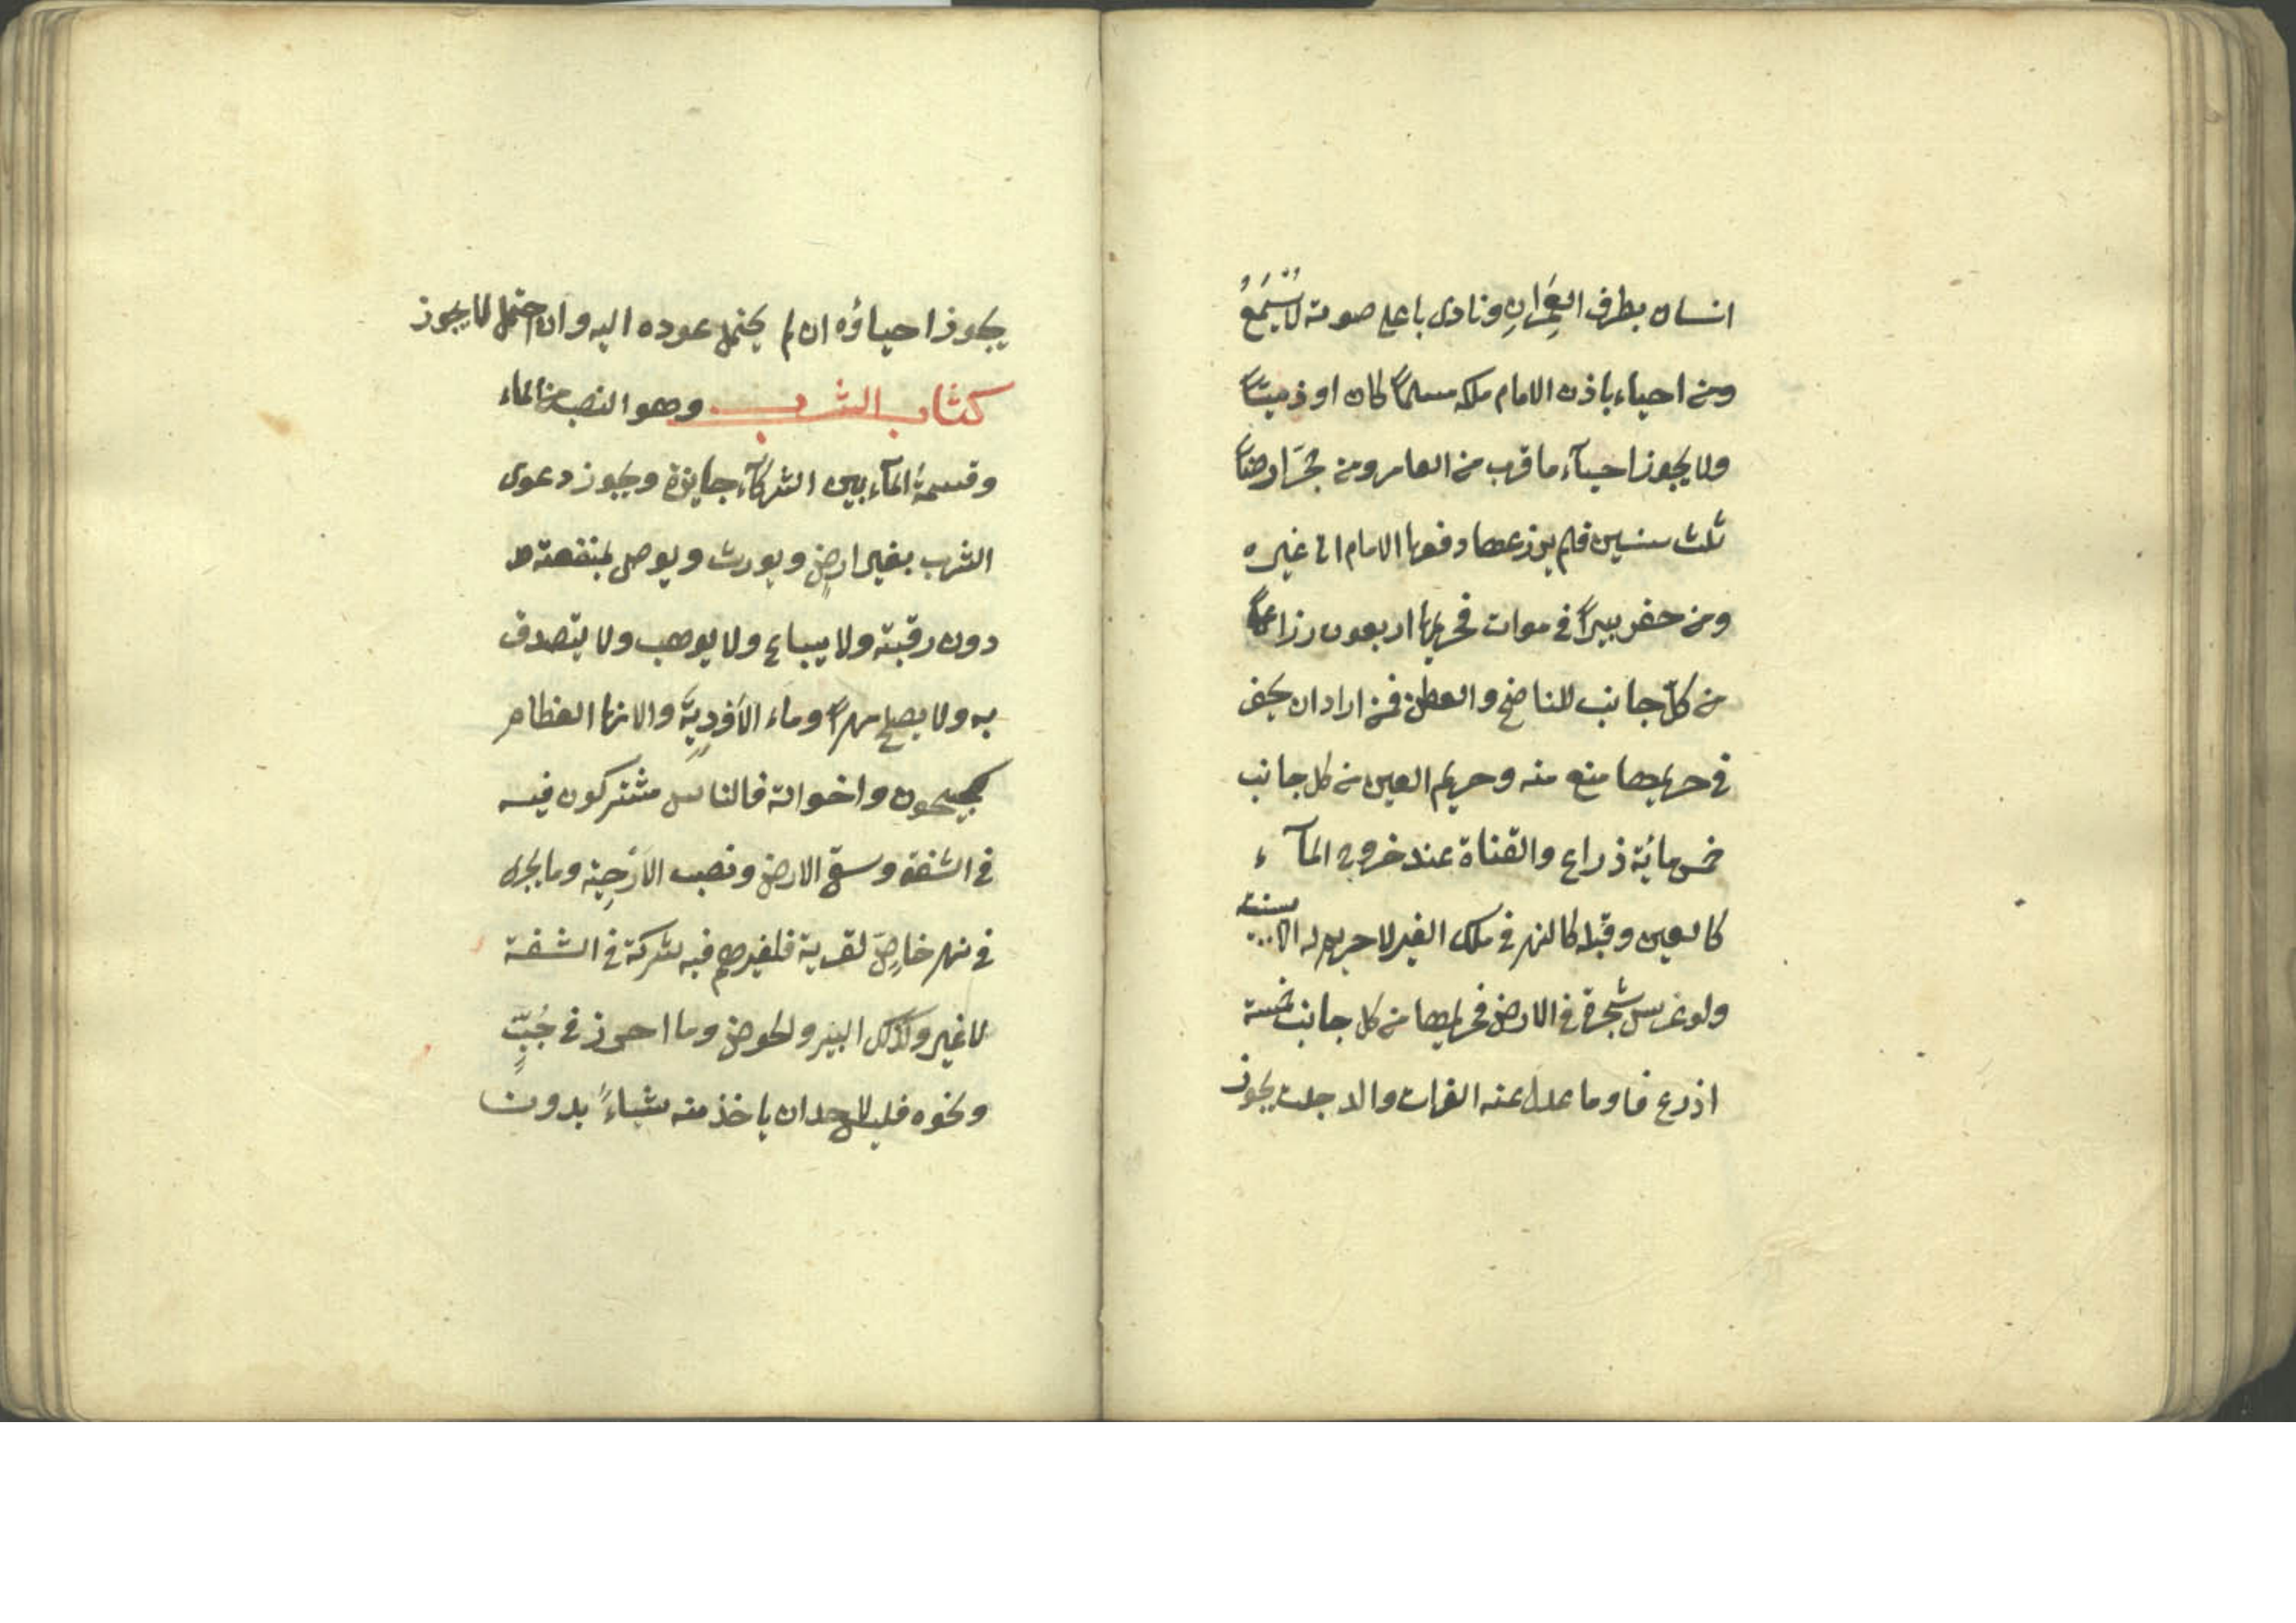 انسان بطرف العِمَرانِ ونادى باعلى صوته لا يُسْتَمَعُ
ومن احياء باذن الامام ملكه مسلماً كان او ذميّاً
ولا يجوز احيآء ما قرب من العامر ومن حجّر ارضاً
ثلث سنين فلم يزرعها دفعها الامام الى غيره
ومن حفر بيراً في موات فحريمها اربعون رزاعاً
من كلّ جانب للناضح والعطن فمن اراد ان يحفر
في حريمها منع منه وحريم العين من كل جانب
خمس مائة ذراع والقناة عند خروج المآء
كالعين وقبله كالنهر في ملك الغير لا حريم له الا ببينة
ولو غرس شجرة في الارض فحريمها من كل جانب خمسة
اذرع فا وما عدل عنه الفرات والدجلت يجوز
يجوز احياؤه ان لم يحتمل عوده اليه وان احتمل لا يجوز
كتاب الشرب وهو النصيب من الماء
وقسمة المآء بين الشركآء جايزة ويجوز دعوى
الشرب بغير ارضٍ ويورث ويوصى بمنفعته
دون رقبته ولا يباع ولا يوهب ولا يتصدق
به ولا يصلح مهراً وماء الاَوْدِيَةِ والانهار العظام
كجيحون واخواته فالناس مشتركون فيه
في الشفة وسقي الارض ونصب الاَرْحِيَة وما يجرى
في نهر خاصّ لقرية فلغيرهم فيه شركة في الشفة
لا غير وكذلك البير والحوض وما احرز في جُبٍّ
ونحوه فليس لاحد ان ياخذ منه شياءً بدون